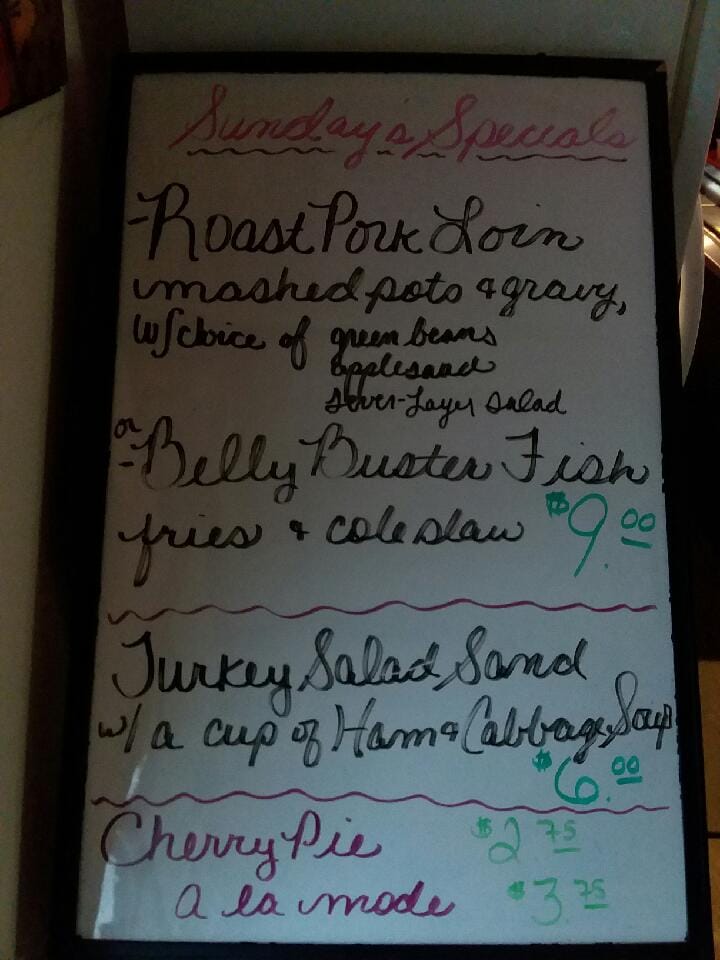 Sunday's Specials
- Roast Pork Loin
mashed pots & gravy,
w/choice of green beans
applesaud
Seven-Layer Salad
or
- Belly Buster Fish
fries & coleslaw $9.00
Turkey Salad Sand
w/ a cup of Ham & Cabbage Soup
$6.00
Cherry Pie $2.75
a la mode $3.75